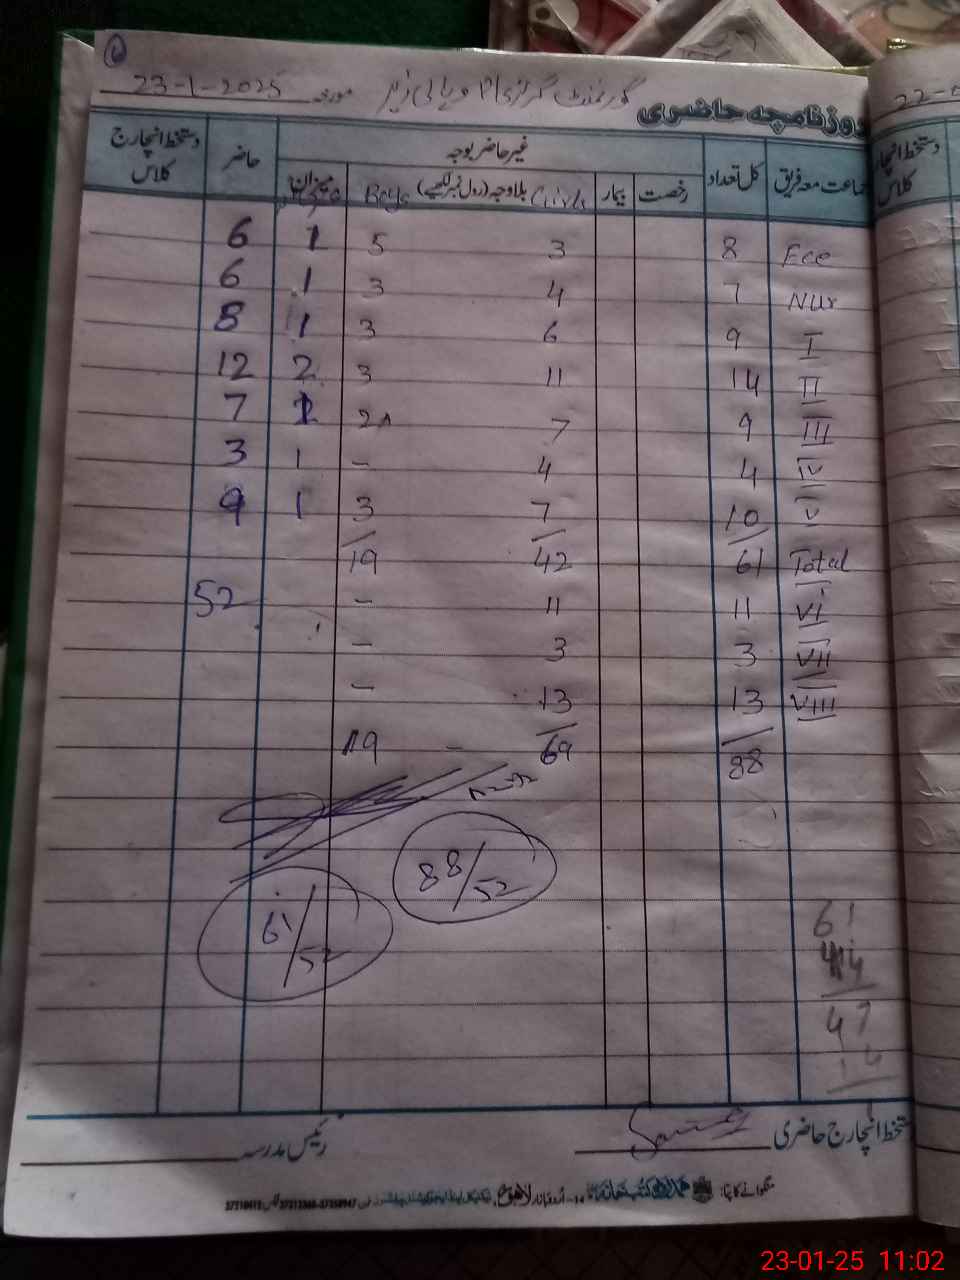 23-1-2025 مورخہ
روزنامچہ حاضری
جماعت معہ فریق کل تعداد رخصت بیمار غیر حاضر بوجہ حاضر دستخط انچارج کلاس
Girls بلاوجہ (رول نمبر لکھیے) Boys میزان
Ece 8 3 5 1 6
Nur 7 4 3 1 6
I 9 6 3 1 8
II 14 11 3 2 12
III 9 7 2 1 7
IV 4 4 - 1 3
V 10 7 3 1 9
Total 61 42 19
VI 11 11 - 52
VII 3 3 -
VIII 13 13 -
88 69 - 19
88/52
61/52
61
14
47
14
دستخط انچارج حاضری
رئیس مدرسہ
منگوانے کا پتا:
اُردو بازار لاہور
22-
دستخط انچارج
کلاس
23-01-25 11:02